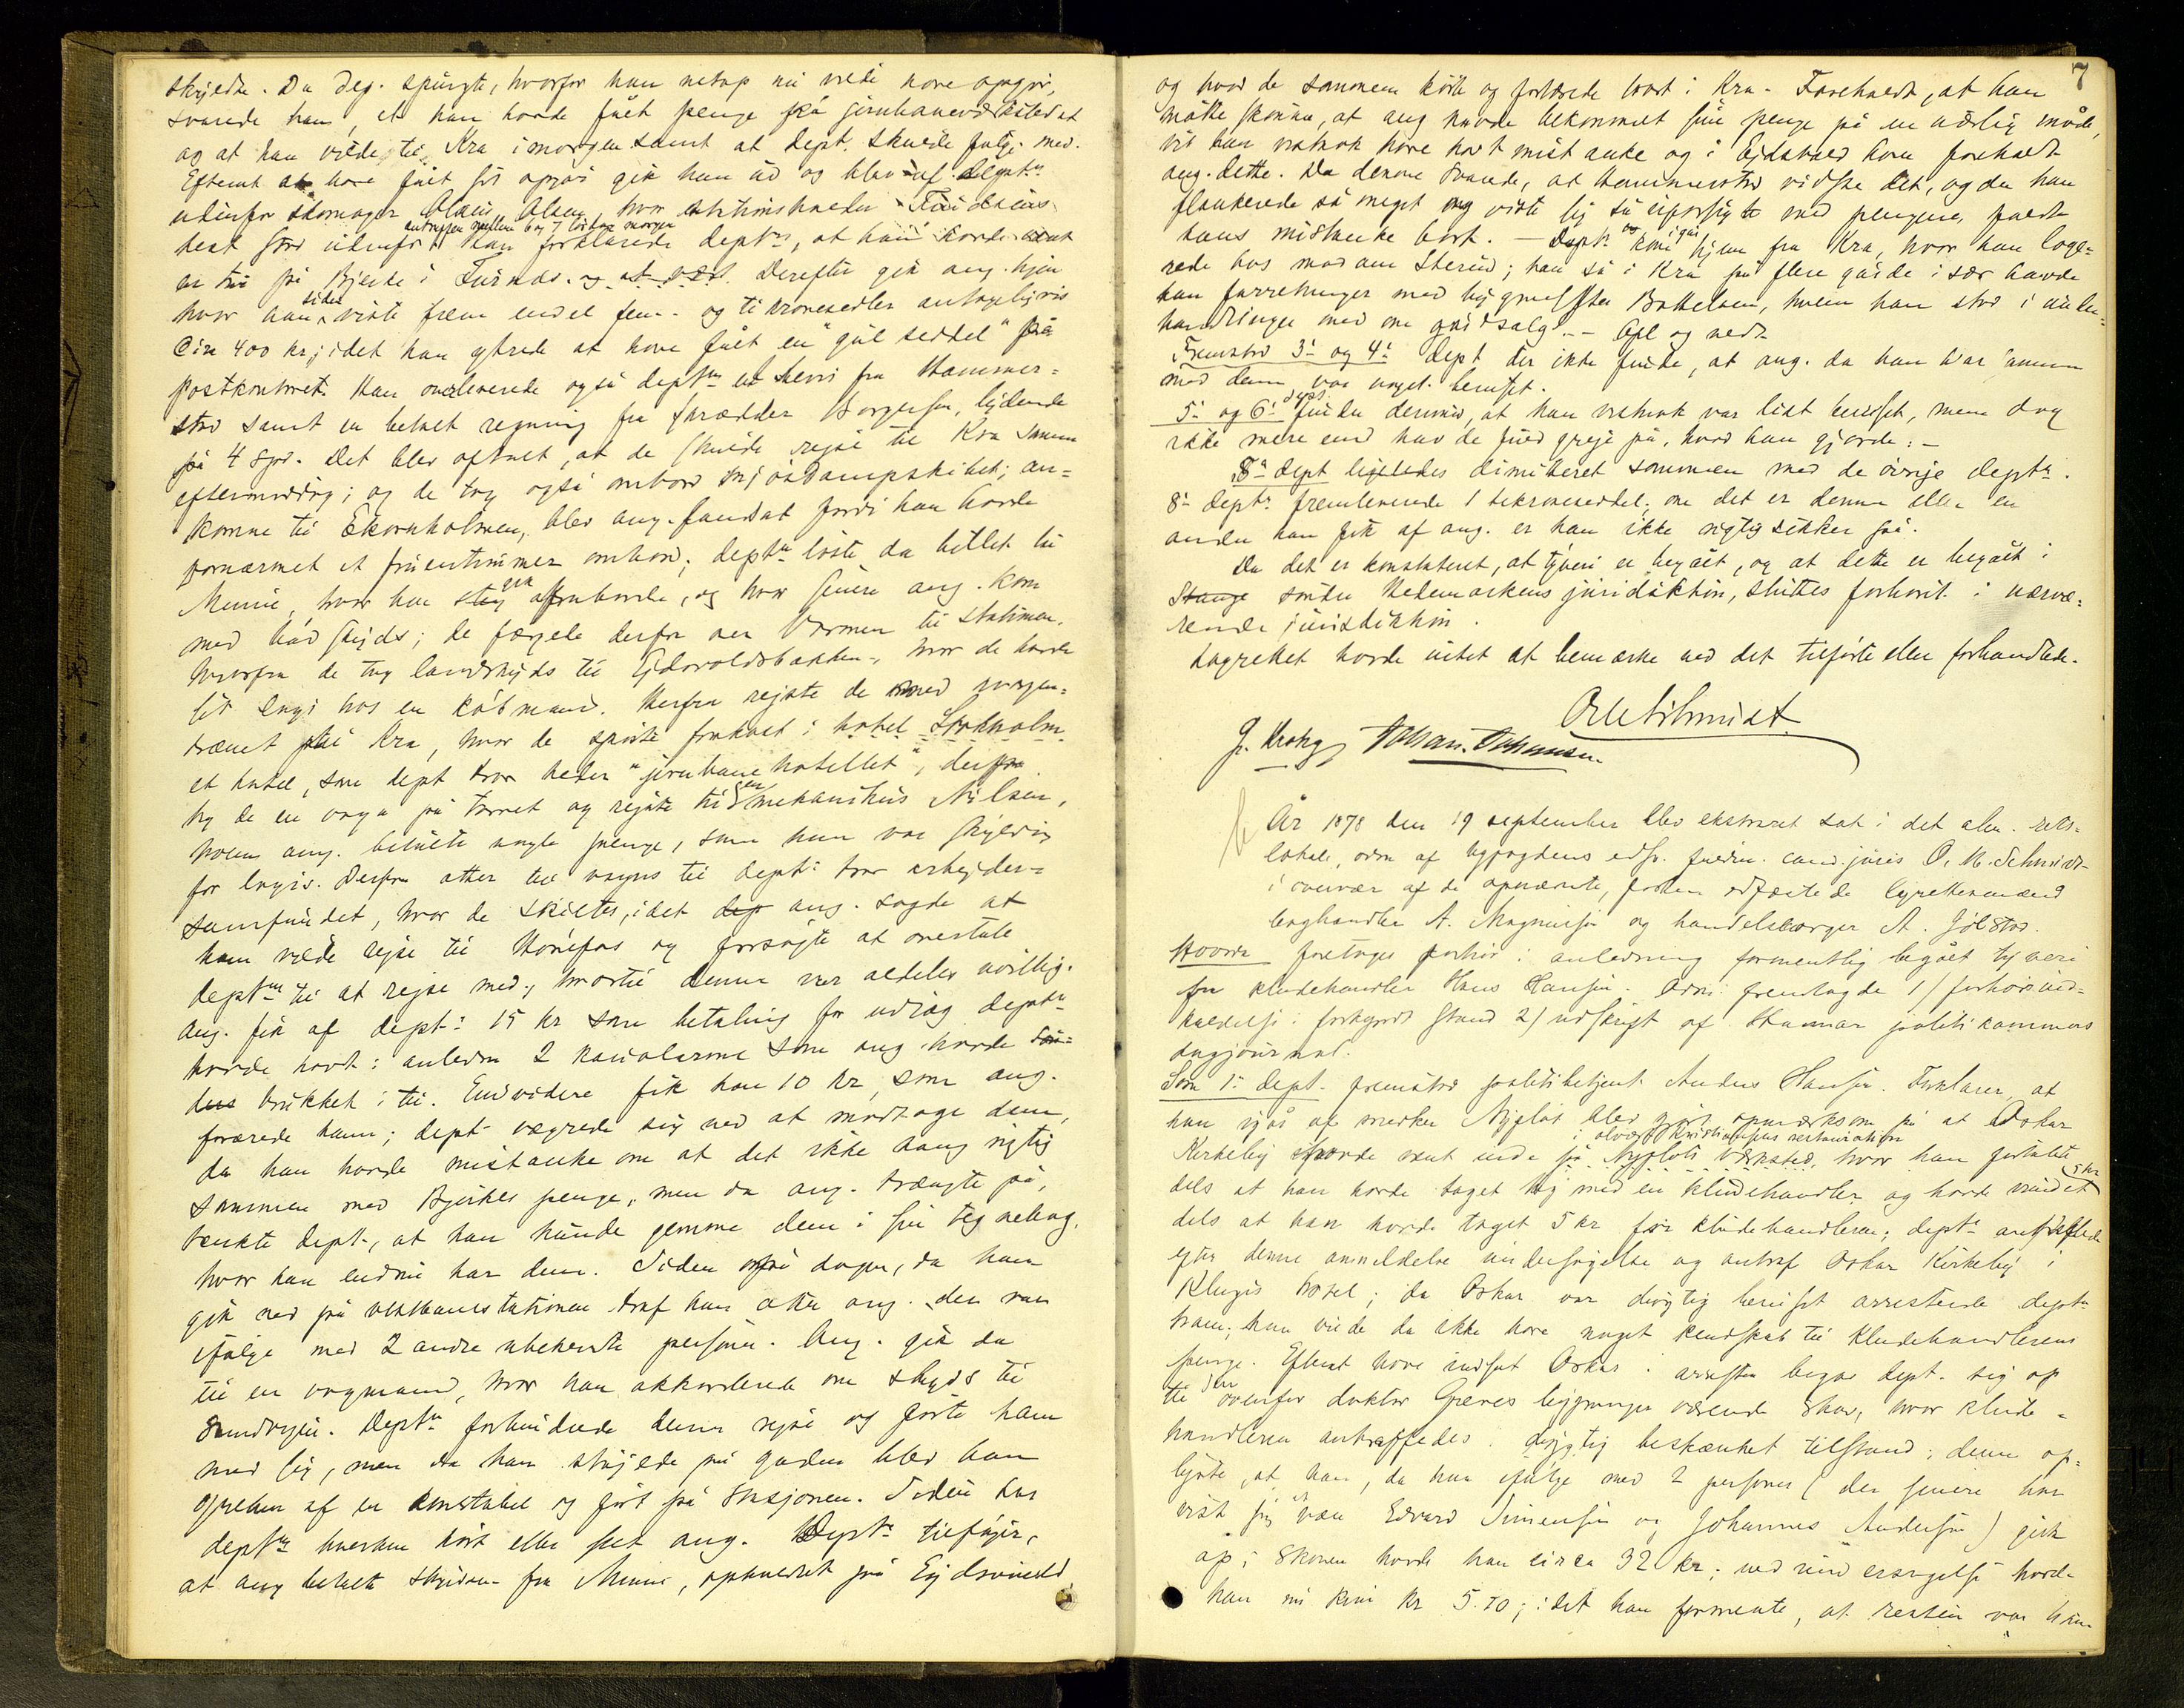 skyldte. Da dep. spurgte, hvorfor han netop nu vilde have opgjør,
svarede han, at han havde fået penge på jernbaneværkstedet
og at han vilde til Kra imorgen samt at dept. skulde følge med.
Efterat at have fået sit opgjør gik han ud og blev af deptn
udenfor skomager Olaus Olsen hvor
antruffen mellem 6 og 7 lørdag morgen
hest stod udenfor. Han forklarede deptn, at han havde været
en tur på Bjerke i Furnæs. og at Derefter gik ang. hjem
siden
hvor han viste frem endel fem- og tikronesedler antageligvis
Circa 400 kr; idet han ytrede at have fået en "gul seddel" på
postkontoret. Han overleverede også deptn et brev fra Hammer=
stad samt en betalt regning fra skrædder Borgersen, lydende
på 4 Spd. Det blev aftalt, at de skulde rejse til Kra samme
eftermiddag; og de tog også ombord i Mjøsdampskibet; an=
komne til Ekornholmen, blev ang. landsat fordi han havde
fornærmet et fruentimmer ombord; deptn løste da billet til
gik
Minne, hvor han steg fraborde, og hvor senere ang. kom
med båd skyds; de færgede derfra over Vormen til stationen.
hvorfra de tog landskyds til Ejdsvoldsbakken, hvor de havde
sit logi hos en købmand. Herfra rejste de med morgen=
trænet til Kra, hvor de spiste frokost i hotel Stokholm
et hotel, som dept tror heder "jernbanehotellet", derfra
tog de en vogn på torvet og rejste til en mekanikus Nilsen,
hvem ang. betalte nogle penge, som han var skyldig
for logis. Derfra atter tilvogns til dept: tror arbejder=
samfundet, hvor de skiltes, idet dep ang. sagde at
han vilde rejse til Hønefos og forsøgte at overtale
deptn til at rejse med, hvortil denne var aldeles uvillig.
Ang. fik af dept: 15 kr som betaling for udlæg deptn
havde havt i anledn 2 kavalerne som ang. havde
brukket i tu. Endvidere fik han 10 kr, som ang.
forærede ham; dept vægrede sig ved at modtage dem,
da han havde mistanke om at det ikke hang rigtig
sammen med Bjerkes penge, men da ang. trængte på,
tænkte dept, at han kunde gemme dem i sin tegnebog,
hvor han endnu har dem. Siden også dagen, da han
gik ned på vestbanestationen traf han atter ang. der var
ifølge med 2 andre ubekendte personer. Ang. gik da
til en vognmand, hvor han akkorderede om skyds til
Sandvigen. Deptn forhindrede denne rejse og førte ham
med sig, men da han støjede på gaden blev han
greben af en konstabel og ført på stasjonen. Siden har
deptn hverken hørt eller set ang. Deptn tilføjer,
at ang betalte skydsen fra Minne, opholdet på Ejdsvold,
7
og hvad de sammen kørte og fortærede bort i Kra. Foreholdt, at han
måtte skønne, at ang havde bekommet sine penge på en uærlig måde,
vil han vistnok have havt mistanke og i Ejdsvold have foreholdt
ang. dette. Da denne svarede, at Hammerstad vidste det, og da han
flankerede så meget og viste sig så uforsigtig med pengene, faldt
hans mistanke bort. — Deptn kom igår hjem fra Kra, hvor han loge=
rede hos madam Sterud; han så i Kra på flere gårde især havde
han forretninger med bygmester Bottelsen, hvem han stod i under=
handlinger med om gårdsalg. — Opl og vedt
Fremstod 3: og 4: dept der ikke fandt, at ang. da han var sammen
med dem, var noget beruset.
5: og 6: dept finder derimod, at han vistnok var lidt beruset, men dog
ikke mere end han de fuld greje på, hvad han gjorde. —
8: dept ligeledes dimitteret sammen med de øvrige deptn.
8: deptn fremleverede 1 tikroneseddel, om det er denne eller en
anden han fik af ang. er han ikke rigtig sikker på.
Da det er konstateret, at tyveri er begået, og at dette er begået i
Stange søndre Hedemarkens jurisdiktion, sluttes forhøret i nærvæ=
rende jurisdiktion.
Lagrettet havde intet at bemærke ved det tilførte eller forhandlede.
O M Schmidt
J. Krohg Johan Johansen
År 1878 den 19 september blev ekstraret sat i det alm. rets=
lokale, adm af byfogdens edsv. fuldm. cand. juris O. M. Schmidt
i overvær af de opnævnte, forhen edfæstede lagrettesmænd
boghandler A. Magnussen og handelsborger A. Jølstad.
Hvorda foretoges forhør i anledning formentlig begået tyveri
fra kludehandler Hans Hansen. Adm: fremlagde 1/ forhørsind=
kaldelse i forkyndt stand 2/ udskrift af Hamar politikammers
dagjournal.
Som 1: dept. fremstod politibetjent Anders Hansen. Forklarer, at
han igår af snedker Nyflot blev gjort opmærksom på at Oskar
i Olvær Kristiansens restauration
Kirkeby havde været inde på Nyflots værksted, hvor han fortalte
dels at han havde taget sig med en kludehandler og havde vundet
dels at han havde taget 5 kr fra kludehandleren; deptn anstillede
efter denne anmeldelse undersøgelse og antraf Oskar Kirkeby i
Kluges hotel; da Oskar var dygtig beruset arresterede deptn
ham; han vilde da ikke have noget kendskab til kludehandlerens
penge. Efterat have indsat Oskar i arresten begav dept. sig op
til den ovenfor doktor Greves bygninger værende skov, hvor klude=
handleren antraffedes i dygtig beskænket tilstand; denne op=
lyste, at han, da han ifølge med 2 personer (der senere har
vist sig at være Edvard Simensen og Johannes Andersen) gik
op i skoven havde han circa 32 kr; ved undersøgelse havde
han nu kun kr 5.70; idet han formente, at resten var ham